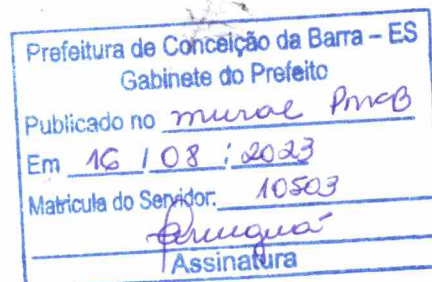 Prefeitura de Conceição da Barra – ES
Gabinete do Prefeito
Publicado no mural PMCB
Em 16 / 08 / 2023
Matricula do Servidor: 10503
Assinatura